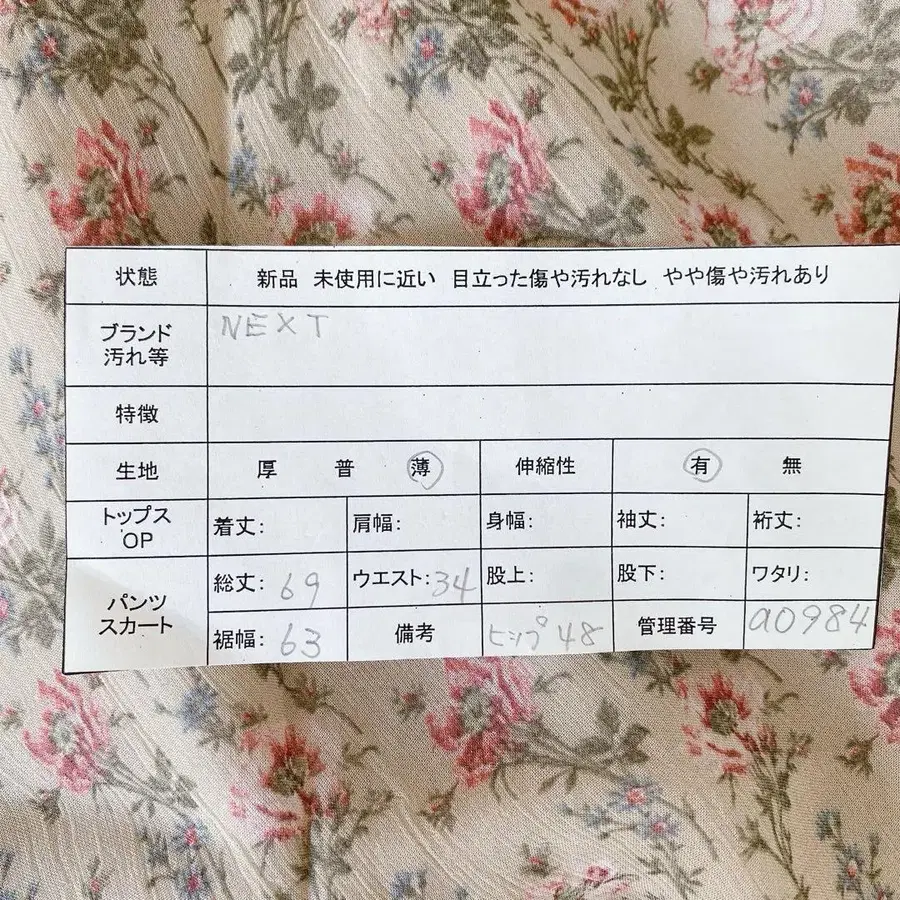 状態 新品 未使用に近い 目立った傷や汚れなし やや傷や汚れあり
ブランド 汚れ等 NEXT
特徴
生地 厚 普 薄 伸縮性 有 無
トップス OP 着丈: 肩幅: 身幅: 袖丈: 裄丈:
パンツ スカート 総丈: 69 ウエスト: 34 股上: 股下: ワタリ:
裾幅: 63 備考 ヒップ 48 管理番号 a0984